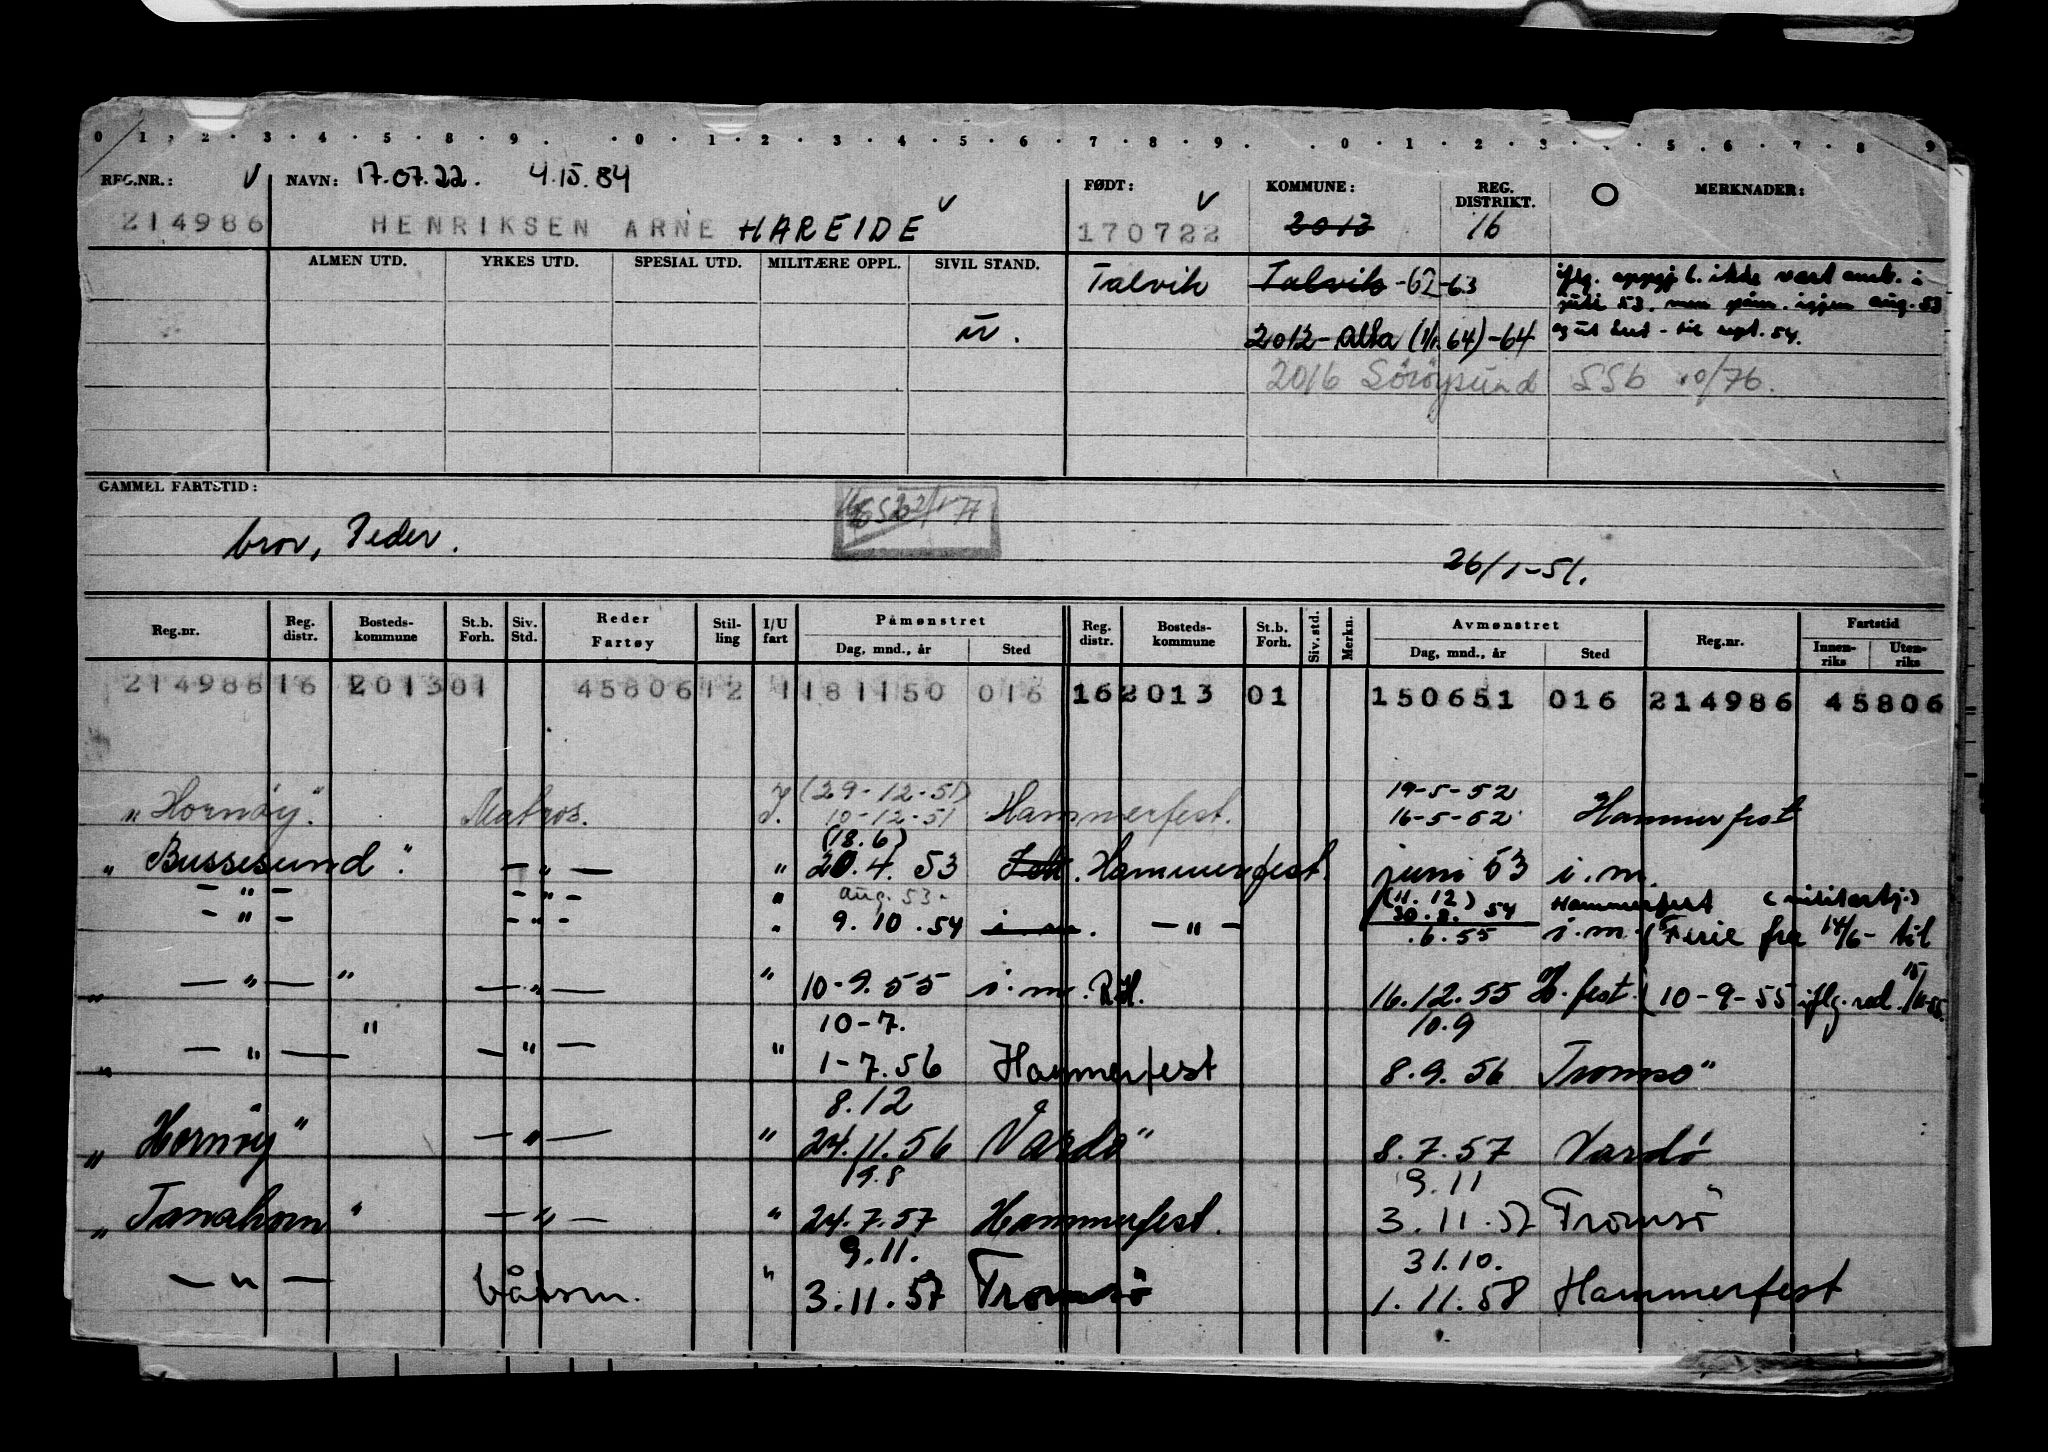 0 1 2 3 4 5 8 9 0 1 2 3 4 5 6 7 8 9 0 1 2 3 5 6 7 8 9
REG.NR.: V NAVN: 17.07.22. 4.15.84 FØDT: V KOMMUNE: REG. DISTRIKT. O MERKNADER:
214986 HENRIKSEN ARNE HAREIDE V 170722 2013 16
ALMEN UTD. YRKES UTD. SPESIAL UTD. MILITÆRE OPPL. SIVIL STAND. Talvik Talvik -62-63 ikke vært i
juli 53. men igjen aug. 53
u. 2012 - Alta (1/1 64) - 64 sept. 54.
2016 Söröysund SSb 10/76.
GAMMEL FARTSTID:
bror, Peder.
26/1-51.
Reg.nr. Reg. distr. Bosteds-kommune St.b. Forh. Siv. Std. Reder Fartøy Stil-ling I/U fart Påmønstret Dag, mnd., år Sted Reg. distr. Bosteds-kommune St.b. Forh. Siv. std. Merkn. Avmønstret Dag, mnd., år Sted Reg.nr. Fartstid Innen-riks Uten-riks
214986 16 2013 01 45806 12 1 181150 016 16 2013 01 150651 016 214986 45806
(29-12-51) 19-5-52
"Hornöy". Matros. 10-12-51 Hammerfest. 16-5-52 Hammerfest
(18.6)
"Bussesund". — " — " 20.4.53 Hammerfest. juni 53 i.m.
— " — — " — " aug. 53. (11.12) 30.8.54 Hammerfest
— " — — " — " 9.10.54 i.m. — " — .6.55 i.m. (Ferie fra 14/6- til
" — " — " — " — " 10-9.55 i.m. 16.12.55 H.fest. (10-9-55 iflg. red.
10-7. 10.9
" — " — " — " — " 1-7.56 Hammerfest 8.9.56 Tromsö
8.12
"Hornöy" — " — " 24.11.56 Vardö 8.7.57 Vardö
19.8 9.11
"Tanahorn" — " — " 24.7.57 Hammerfest. 3.11.57 Tromsö
9.11. 31.10.
— " — båtsm. " 3.11.57 Tromsö 1.11.58 Hammerfest